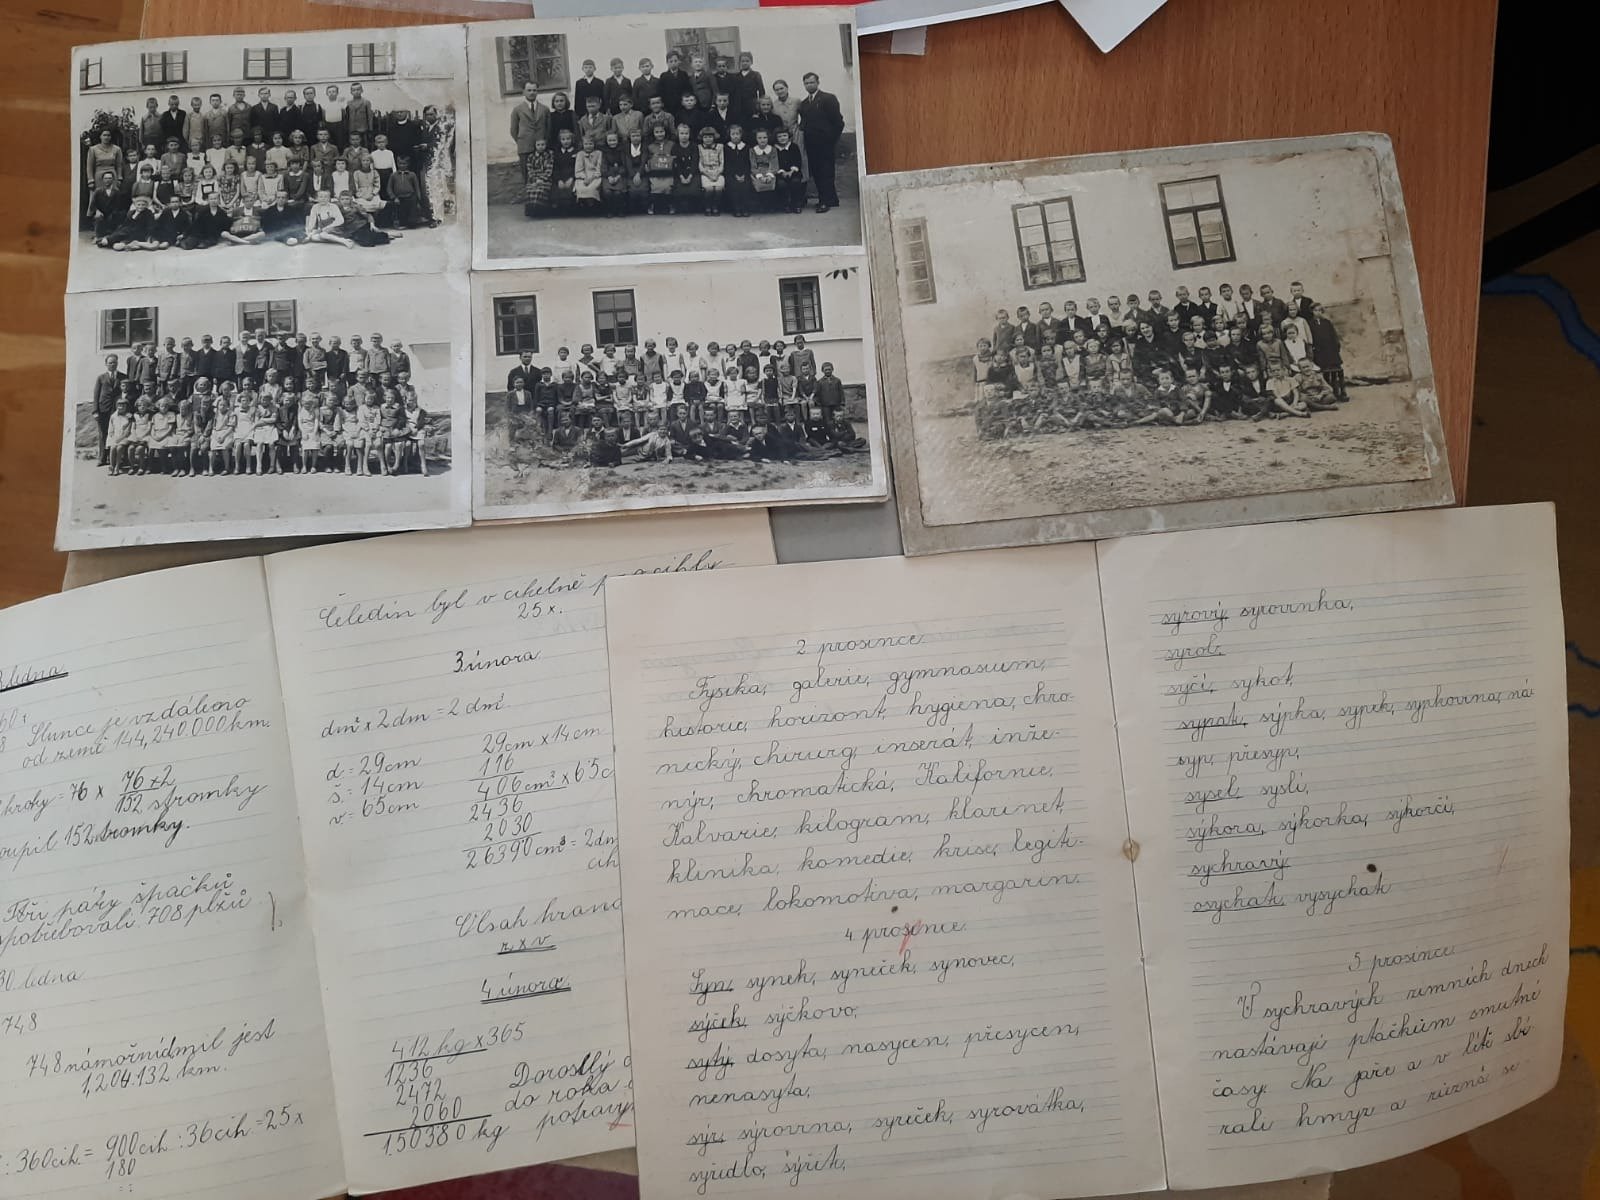 Slunce je vzdáleno
od země 144,240.000 km.
kroky = 76 x 76 x 2
152 stromky
152 stromky.
Tři páry špačků
spotřebovali 708 plžů
30 ledna
748
748 námořních mil jest
1,204.132 km.
: 360 cih. = 900 cih : 36 cih. = 25 x
180
Čeledín byl v cihelně pro cihly
25 x.
3. února
dm² x 2 dm = 2 dm³.
d. = 29 cm
š. = 14 cm
v. = 65 cm
29 cm x 14 cm
116
406 cm² x 65
2436
2030
26390 cm³ = 2 dm
cih
Obsah hrano
z x v
4 února
412 kg x 365
1236
2472
2060
150380 kg
Dorostlý
do roka
potravy
2 prosince
Fysika, galerie, gymnasium,
historie, horizont, hygiena, chro-
nický, chirurg, inserát, inže-
nýr, chromatická, Kalifornie,
Kalvarie, kilogram, klarinet,
klinika, komedie, krise, legiti-
mace, lokomotiva, margarin.
4 prosince.
Syn, synek, syneček, synovec,
sýček, sýčkovo,
sytý, dosyta, nasycen, přesycen,
nenasyta,
sýr, sýrovna, syreček, syrovátka,
syřidlo, syřit,
syrový, syrovinka,
syrob,
syčí, sykot,
sypat, sýpka, sypek, sypkovina, ná-
syp, přesyp,
sysel, syslí,
sýkora, sýkorka, sýkorčí,
sychravý
osychat, vysychat
5 prosince
V sychravých zimních dnech
nastávají ptáčkům smutné
časy. Na jaře a v létě sbí-
rali hmyz a různá se-